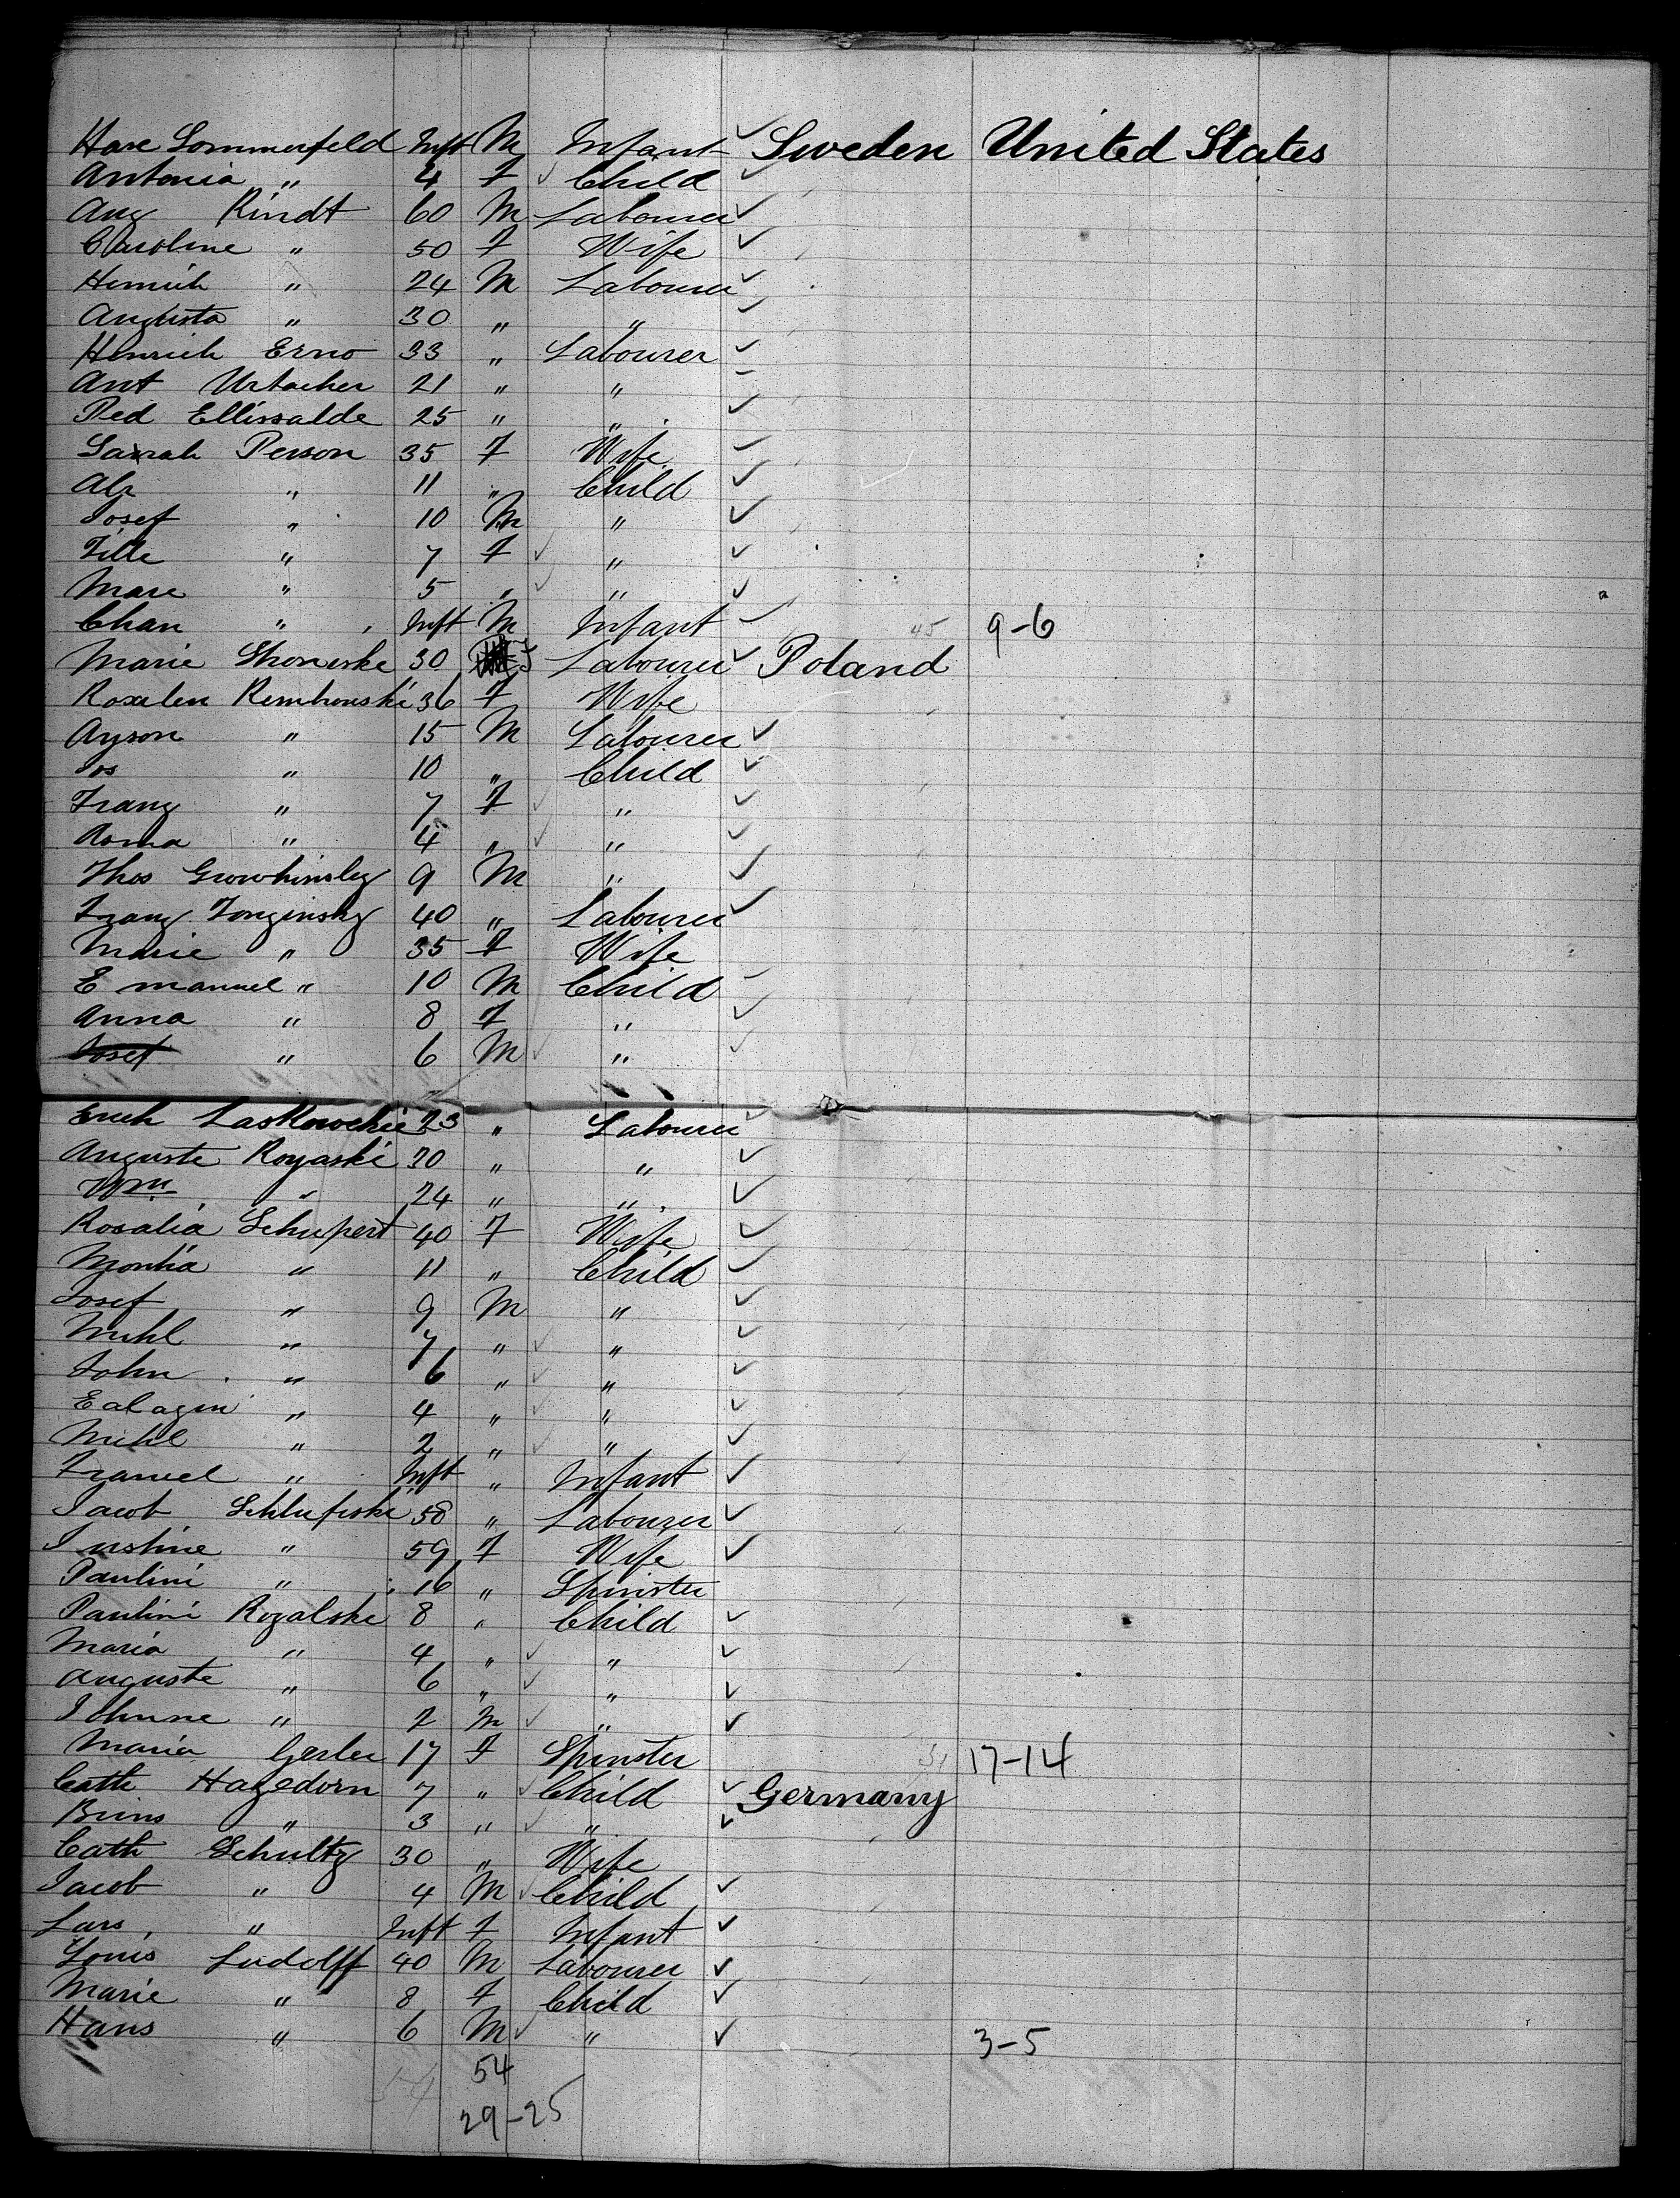 Hare Sommerfeld Inft M Infant Sweden United States
Antonia " 4 F Child
Aug Rindt 60 M Labourer
Caroline " 50 F Wife
Heinrich " 24 M Labourer
Augusta " 30 " "
Heinrich Erno 33 " Labourer
Ant Urtacher 21 " "
Ped Ellissalde 25 " "
Sarah Person 35 F Wife
Alr " 11 " Child
Josef " 10 M "
Tille " 7 F "
Mare " 5 " "
Chan " Inft M Infant 45 9-6
Marie Shoneske 30 F Labourer Poland
Roxalen Remhouski 36 F Wife
Ayson " 15 M Labourer
Jos " 10 " Child
Franz " 7 F "
Roma " 4 " "
Thos Growhinsley 9 M "
Franz Tonginsky 40 " Labourer
Marie " 35 F Wife
Emanuel " 10 M Child
Anna " 8 F "
Josef " 6 M "
Erich Laskowchie 23 " Labourer
Auguste Royaski 30 " "
Wm " 24 " "
Rosalia Schupert 40 F Wife
Montia " 11 " Child
Josef " 9 M "
Mihl " 7 " "
John " 6 " "
Ealagin " 4 " "
Mihl " 2 " "
Framel " Inft " Infant
Jacob Schlufiski 58 " Labourer
Justine " 59 F Wife
Paulini " 16 " Spinster
Paulini Rogalski 8 " Child
Maria " 4 " "
Auguste " 6 " "
Johnne " 2 M "
Maria Gerler 17 F Spinster 31 17-14
Cath Hagedorn 7 " Child Germany
Bins " 3 " "
Cath Schultz 30 " Wife
Jacob " 4 M Child
Lars " Inft F Infant
Louis Ludolff 40 M Labourer
Marie " 8 F Child
Hans " 6 M " 3-5
54 54
29-25